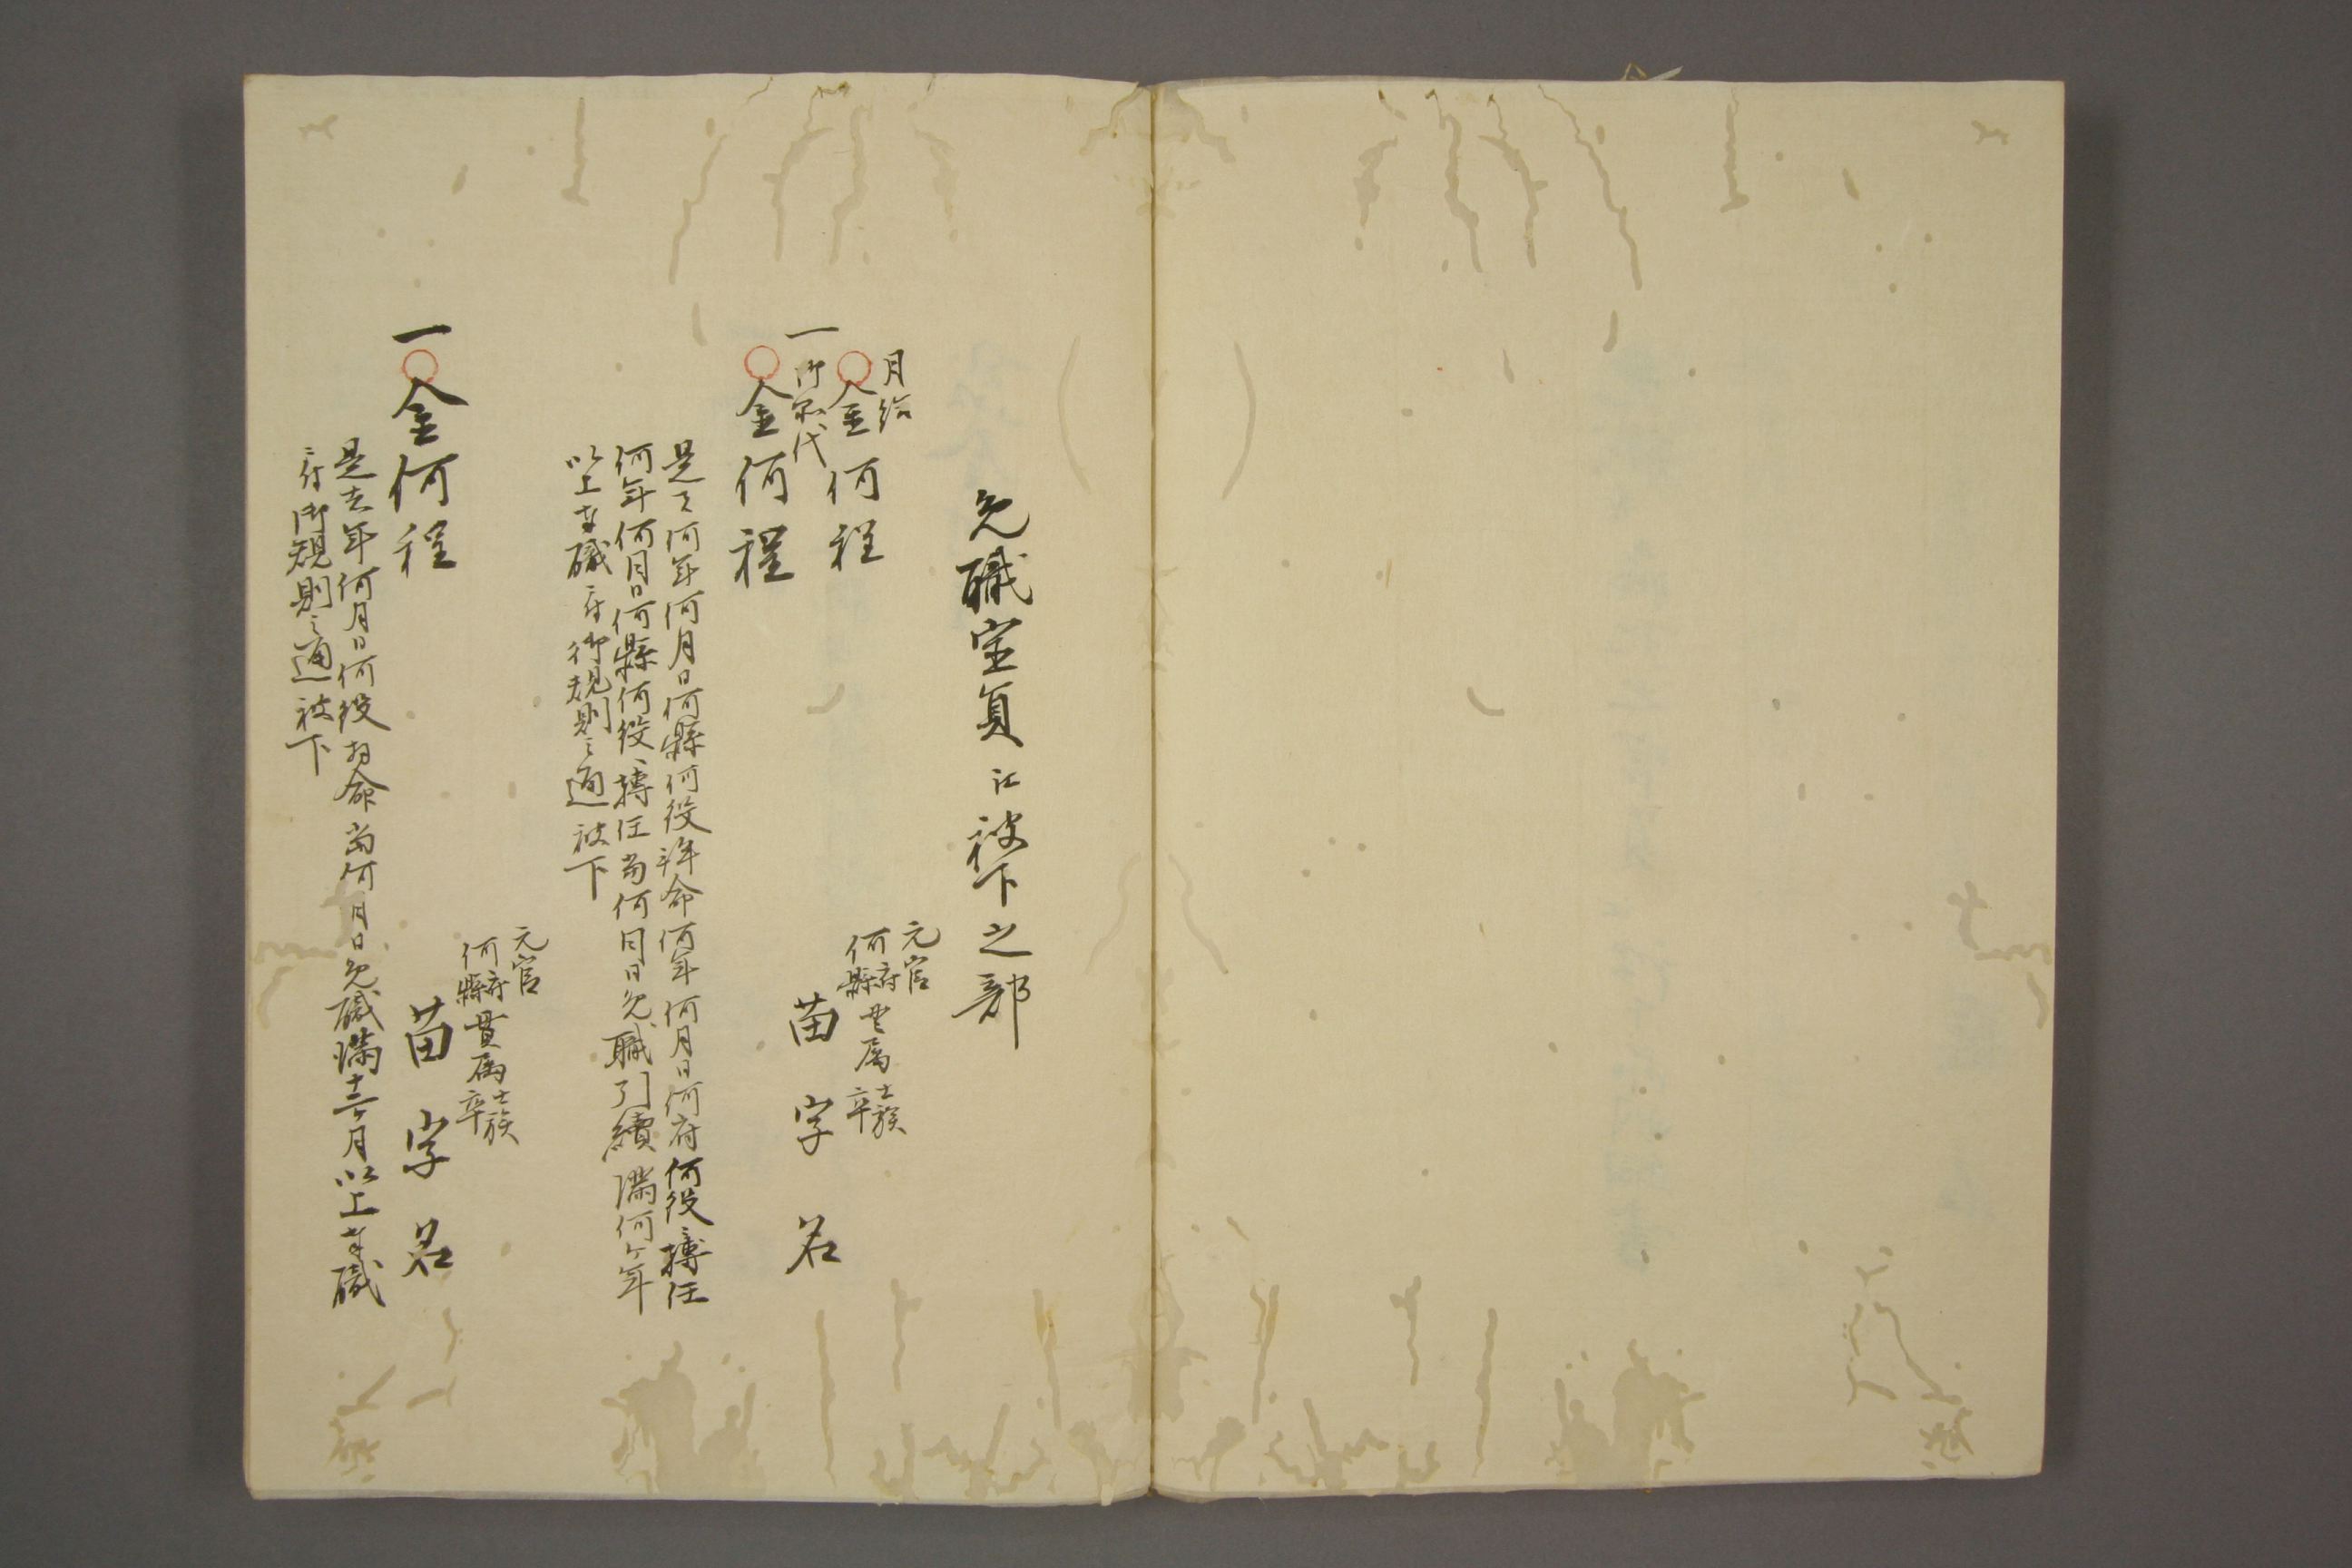 免職定員江被下之部
月給
一 金何程
元官
何府縣貫属士族卒
御扶代
金何程
苗字名
是ハ何年何月日何縣何役拜命何年何月日何府何役ニ轉任
何年何月日何縣何役ニ轉任当何月日免職引續満何ヶ年
以上奉職ニ付御規則之通被下
元官
何府縣貫属士族卒
一 金何程
苗字名
是去年何月日何役拜命当何月日免職満十三ヶ月以上奉職
ニ付御規則之通被下